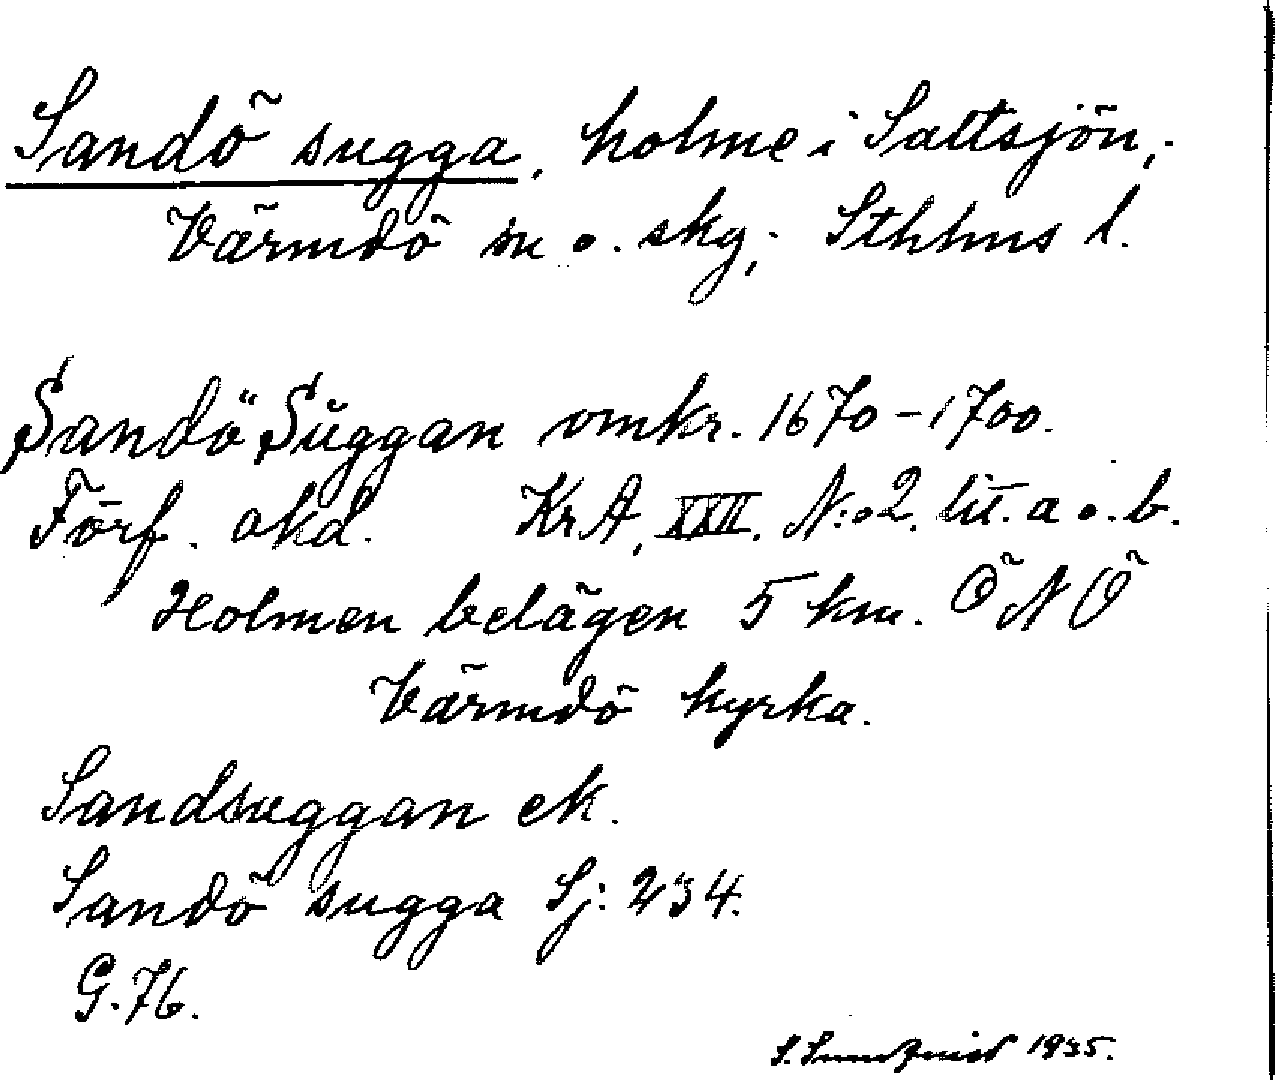 Sandö sugga, holme i Saltsjön,
Värmdö sn o. skg, Sthlms l.
Sandö Suggan omkr. 1670-1700.
Förf. okd. KrA, XXII. N:o 2. lit. a o. b.
Holmen belägen 5 km. ÖNÖ
Värmdö kyrka.
Sandsuggan ek.
Sandö sugga Sj: 234.
G. 76.
1935.